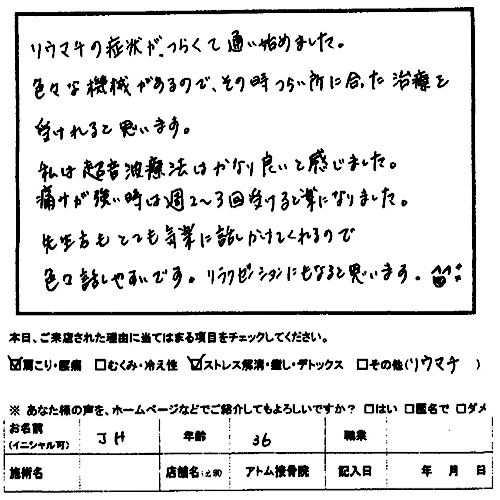 リウマチの症状が、つらくて通い始めました。
色々な機械があるので、その時つらい所に合った治療を
受けれると思います。
私は超音波療法はかなり良いと感じました。
痛みが強い時は週2〜3回受けると楽になりました。
先生方もとても気楽に話しかけてくれるので
色々話しやすいです。リラクゼーションにもなると思います。
本日、ご来店された理由に当てはまる項目をチェックしてください。
☑肩こり・腰痛 □むくみ・冷え性 ☑ストレス解消・癒し・デトックス □その他(リウマチ )
※ あなた様の声を、ホームページなどでご紹介してもよろしいですか? □はい □匿名で □ダメ
お名前 (イニシャル可) JH 年齢 36 職業
施術名 店舗名 アトム接骨院 記入日 年 月 日